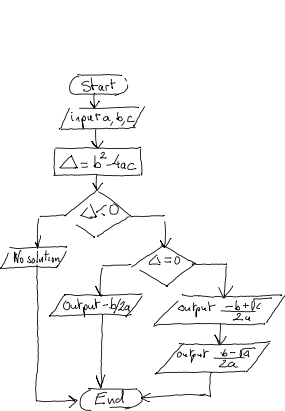 Start
input a, b, c
Δ = b² - 4ac
Δ < 0
No solution
Δ = 0
Output -b/2a
output -b+√Δ
2a
output -b-√Δ
2a
End